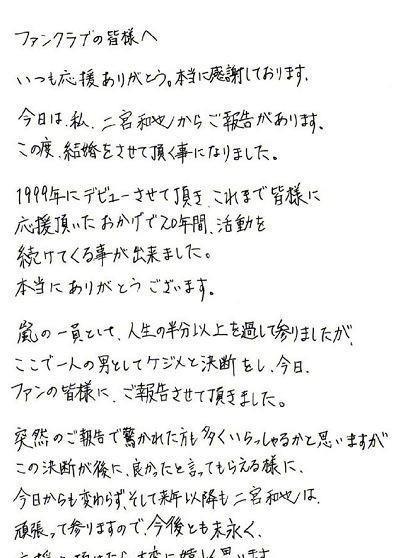 ファンクラブの皆様へ
いつも応援ありがとう。本当に感謝しております。
今日は、私、二宮和也からご報告があります。
この度、結婚をさせて頂く事になりました。
1999年にデビューさせて頂き、これまで皆様に
応援頂いたおかげで20年間、活動を
続けてくる事が出来ました。
本当にありがとうございます。
嵐の一員として、人生の半分以上を過して参りましたが、
ここで一人の男としてケジメと決断をし、今日、
ファンの皆様に、ご報告させて頂きました。
突然のご報告で驚かれた方も多くいらっしゃるかと思いますが
この決断が後に、良かったと言ってもらえる様に、
今日からも変わらず、そして来年以降も二宮和也は、
頑張って参りますので、今後とも末永く、